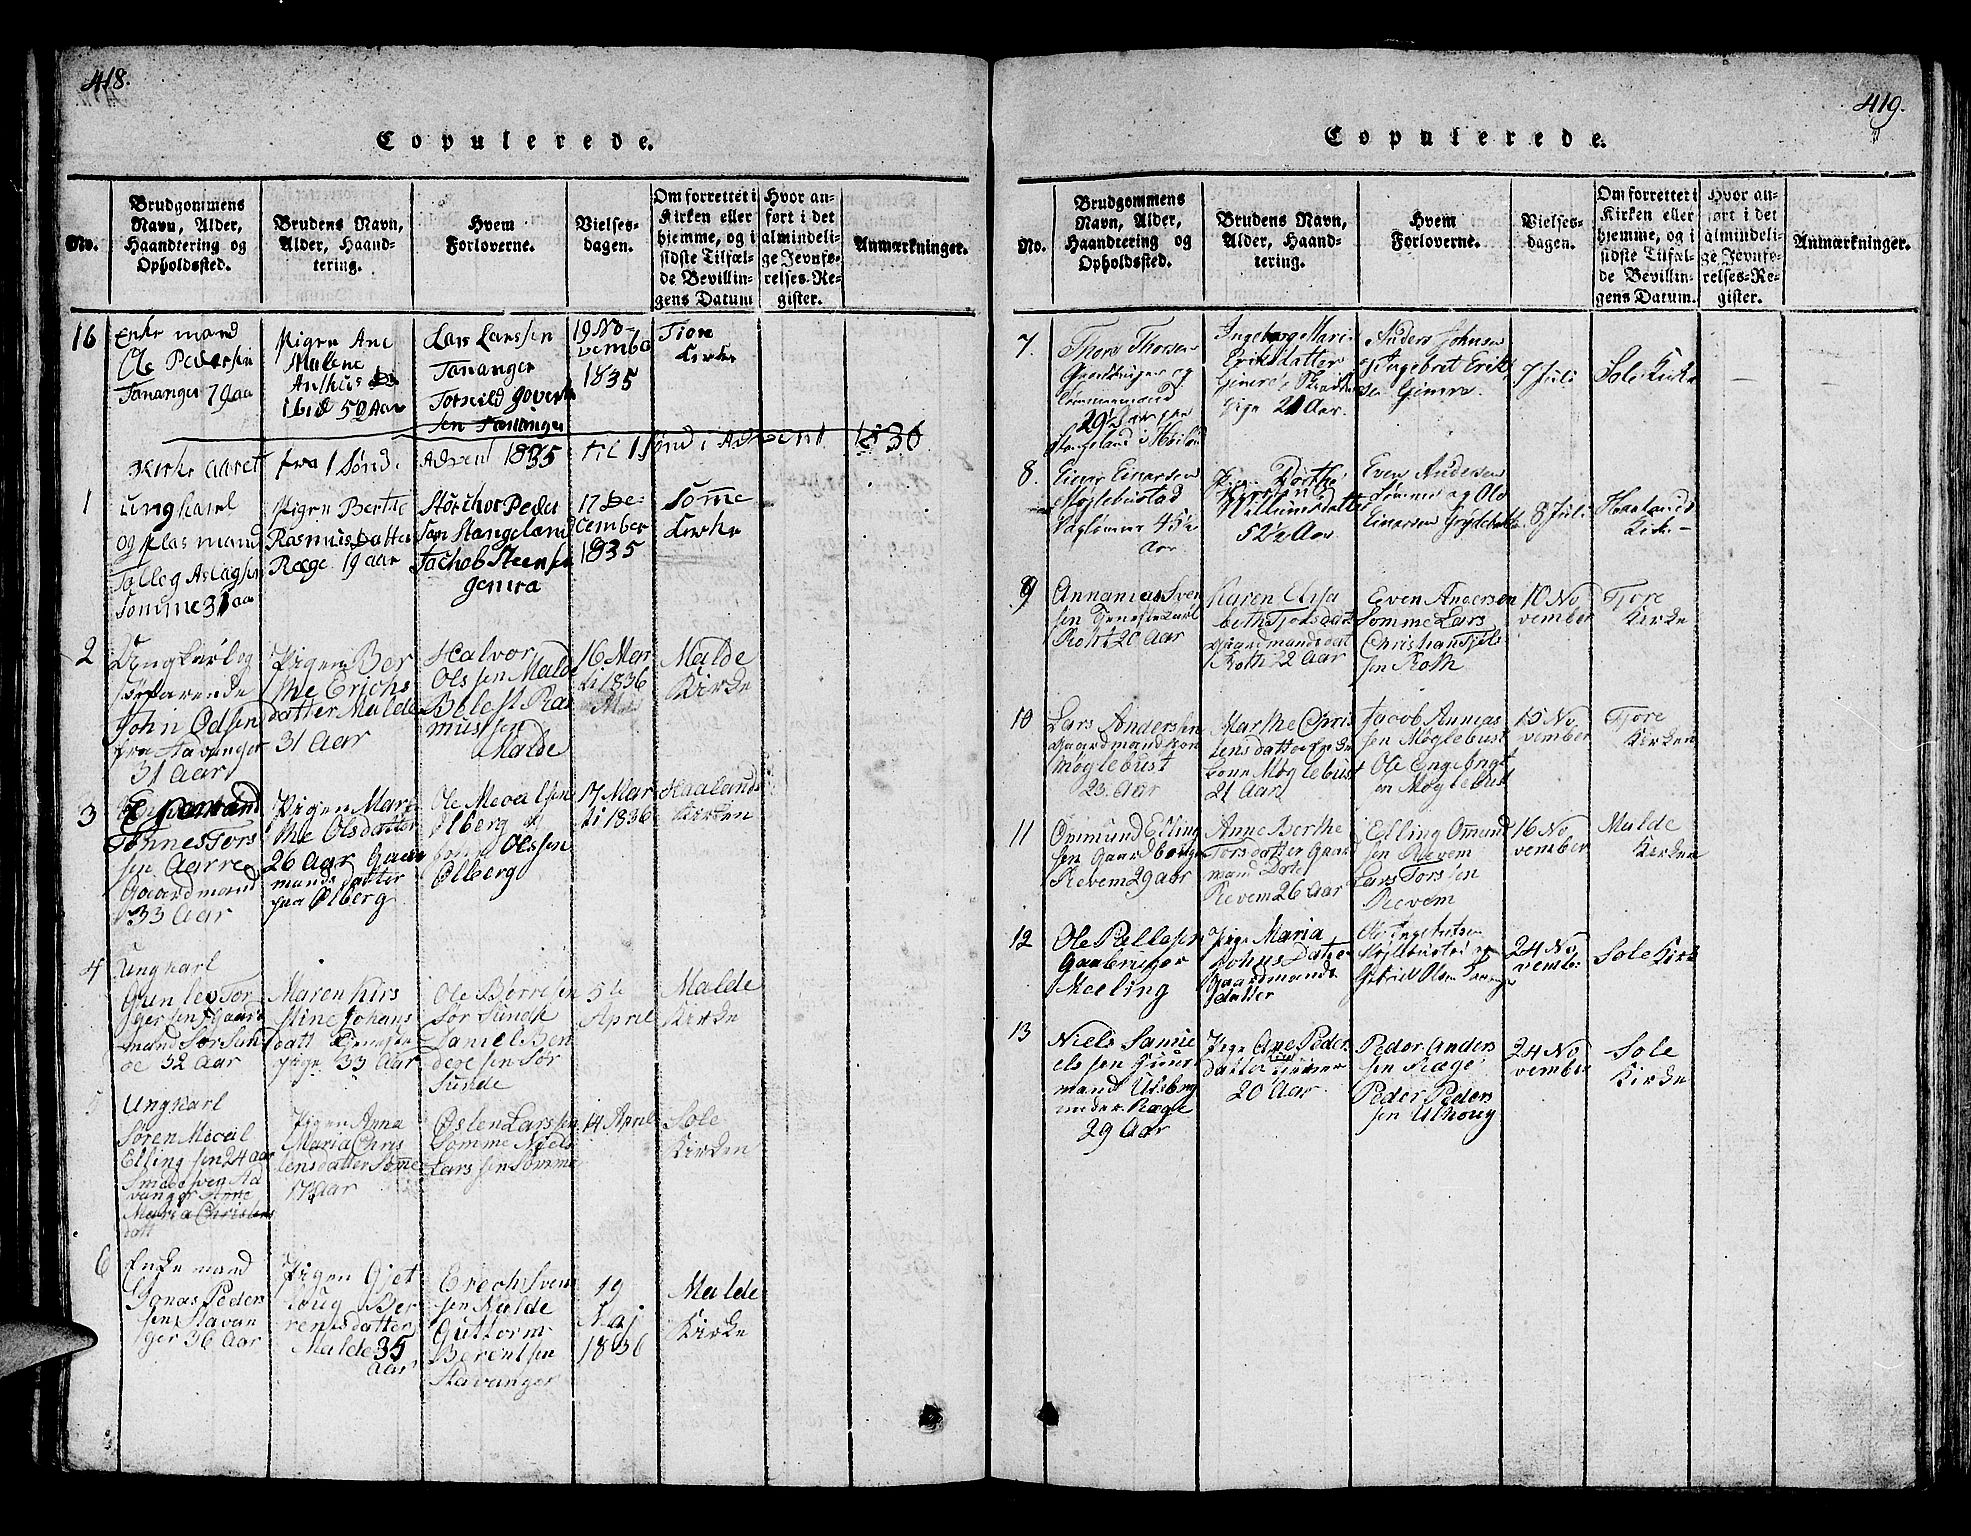 418.
Copulerede.
No.
Brudgommens
Navn, Alder,
Haandtering og
Opholdssted.
Brudens Navn,
Alder, Haand-
tering.
Hvem
Forloverne.
Vielses-
dagen.
Om forrettet i
Kirken eller
hjemme, og i
sidste Tilfæl-
de Bevillin-
gens Datum
Hvor an-
ført i det
almindeli-
ge Jevnfø-
relses-Re-
gister.
Anmærkninger.
16
Enke mand
Ole Pedersen
Tananger 79 aa
Pigen Ane
Malene
ibid 50 Aar
Lars Larssen
Tananger
Tornild Govert
sen Tananger
19 No-
vember
1835
Tion
Kirke
Kirke aaret fra 1 Sønd i Advent 1835 til 1 Sønd i Advent 1836
1
Ungkarl
og plas mand
Tolleg Aslagsen
Somme 31 aa
Pigen Berthe
Rasmus Datter
Ræge 19 aar
Storchor Peder
sen Stangeland
Jachob Steensen
Gemra
17 De-
cember
1835
Somme
Kirke
2
Ungkarl og
søfarende
John Odsen
fra Stavanger
31 Aar
Pigen Ber
the Erichs
datter Malde
31 Aar
Halvor
Olssen Malde
Ras
mussen
Malde
16 Mar
ti 1836
Malde
Kirke
3
Tønnes Tors
sen Aarre
Gaardmand
33 Aar
Pigen Mar
the Olsdatter
26 Aar Gaar
mands datter
fra Ølberg
Ole Meoelsen
Ølberg og
Olssen
Ølberg
17 Mar
ti 1836
Haalands
Kirken
4
Ungkarl
Gunlev Tor
gersen Gaard
mand Sør Sun
de 32 Aar
Maren Kirs
stine Johans
datt Tjeneste
pige 33 Aar
Ole Børresen
Sør Sunde
Daniel Ben
dexesen Sør
Sunde
5te
April
Malde
Kirke
5
Ungkarl
Søren Miceil
Elling sen 24 aar
Smedesven Sta
vanger Anne
Maria Christens
datt
Pigen Anna
Maria Chris
tensdatter Sømme
17 Aar
Østen Larssen
Somme Niels
Lars sen Sømme
14 April
Sole
Kirken
6
Enke mand
Jonas Peder
sen Stavan
ger 36 Aar
Pigen Gjet
loug Ber
rentsdatter
Malde 35
Aar
Erech Svens
sen Malde
Guttorm
Berentsen
Stavanger
19
Maj
1836
Malde
Kirke
419.
Copulerede.
No.
Brudgommens
Navn, Alder,
Haandtering og
Opholdssted.
Brudens Navn,
Alder, Haand-
tering.
Hvem
Forloverne.
Vielses-
dagen.
Om forrettet i
Kirken eller
hjemme, og i
sidste Tilfæl-
de Bevillin-
gens Datum.
Hvor an-
ført i det
almindeli-
ge Jevnfø-
relses-Re-
gister.
Anmærkninger.
7.
Thore Thorsen
Gaardbruger og
29½ Aar
Stangeland i Høiland
Ingeborg Marie
Eriksdatter
Gimre
Pige 21 Aar.
Anders Johnsen
og Ingebret Erik
sen Gimre.
7 Juli
Sole Kirke
8.
Einar Einarsen
Møglebustad
45½
Aar.
Pige Dorthe
Villiumsdatter
52½ Aar
Even Andersen
Sømme og Ole
Einarsen
8 Juli
Haalands
Kirke
9
Annanias Sven
sen Tjenestekarl
Roht 20 Aar
Karen Elisa
beth Tjorsdatt
Gaardmands dat
Roth 22 Aar
Even Andersen
Somme Lars
Christian Tjøls
sen Roth
10 No
vember
Tjore
Kirke
10
Lars Anderssen
Gaardmand
Møglebust
23. Aar
Marthe Chris
tensdatter
Møglebust
21 Aar
Jacob Annias
sen Møglebust
Ole Engebrigt
sen Møglebust
15 No
vember
Tjore
Kirken
11
Ommund Elling
sen Gaardbruger
Revem 29 aar
Anne Berthe
Torsdatter Gaar
mand Dater
Revem 26 Aar
Elling Ommund
sen Revem
Lars Torssen
Revem
16 No
vember
Malde
Kirken
12
Ole Pallesen
Gaabruger
Meeling
Pige Maria
Johns Dater
Gaardmands
datter
Ole Ingebretsen
Møglebustad og
Gabriel Olsen
24 No
vember
Sole Kirke
13
Niels Samue
elssen Guur
mand
under Ræge
29 Aar
Pige Ane Peder
datter
20 Aar.
Peder Anders
sen Ræge
Peder Peders
sen Ulhoug
24 No
vember
Sole
Kirke